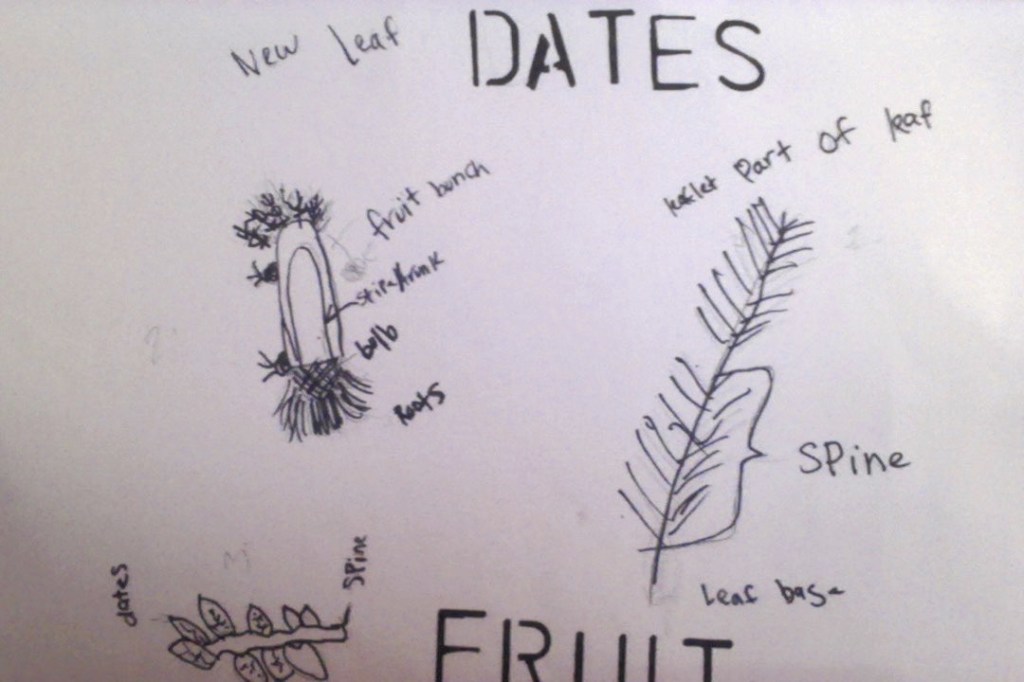 New leaf
DATES
leaflet part of leaf
fruit bunch
stipe/trunk
bulb
Roots
Spine
dates
Spine
Leaf base
FRUIT